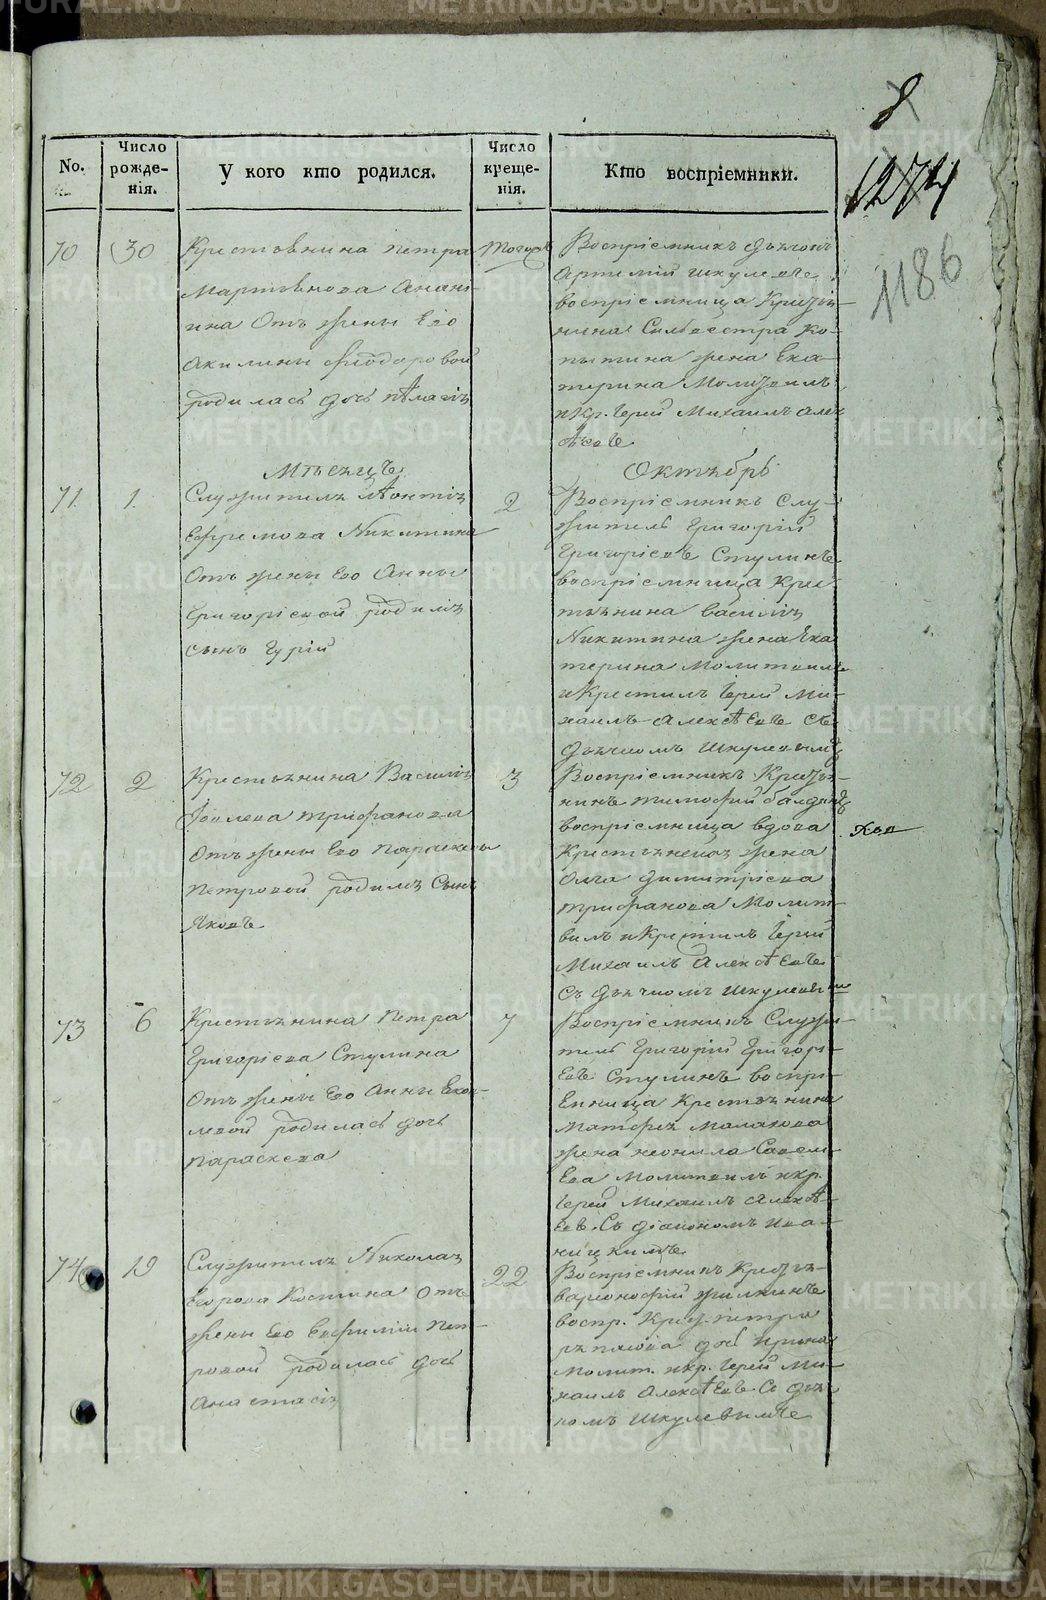 8
1274
1186
No.
Число рожде-
нія.
У кого кто родился.
Число креще-
нія.
Кто воспріемники.
70
30
Крестьянина Петра
Мартьянова Анань-
ина отъ жены Его
Акилины Фіодоровой
родилась дочь Пѣлагія
тогожъ
Воспріемникъ дьячокъ
Артемій Шкулевъ
воспріемница Кресть-
нина Силвестра Ко-
пытина жена Ека-
терина Молитвилъ
и кр. Іерей Михаилъ Алек
ѣевъ
Мѣсяцъ
Октябрь
71
1.
Служителя Лѣонтія
Ефремова Никитина
Отъ жены Его Анны
Григоріевой родился
сынъ Гурій
2
Воспріемникъ Слу-
житель Григорій
Григоріевъ Стулинъ
воспріемница Крес
тьянина Василія
Никитина жена Ека
терина Молитвилъ
и Крестилъ Іерей Ми-
хаилъ Алексѣевъ Съ
дьячкомъ Шкулевымъ
72
2
Крестьянина Василія
Іовлева Трифанова
Отъ жены Его Параскевы
Петровой родился Сынъ
Яковъ
3
Воспріемникъ Кресть-
нинъ Тимофий
воспріемница вдова
Крестьянская жена
Олга Димитріева
Трифанова Молит-
вилъ и Крестилъ Іерей
Михаилъ Алексѣевъ
Съ дьячкомъ Шкулевым
73
6
Крестьянина Петра
Григоріева Стулина
Отъ жены Его Анны Еков-
левой родилась дочь
Параскева
7
Воспріемникъ Служи-
тель Григорій Григорі-
евъ Стулинъ воспрі-
емница Крестьянина
Матфея Малахова
жена Неонила Савель-
ева Молитвилъ и кр.
Іерей Михаилъ Алексѣ-
евъ Съ діакономъ Ива-
ницкимъ
74
19
Служителя Николая
Егорова Костина Отъ
жены Его Евфиміи Пет-
ровой родилась дочь
Анастасія
22
Воспріемникъ Кресть-
воспр. Крес. Петра
дочь Ирина
молит. и кр. Іерей Ми-
хаилъ Алексѣевъ Съ дьяч
комъ Шкулевымъ
METRIKI.GASO-URAL.RU